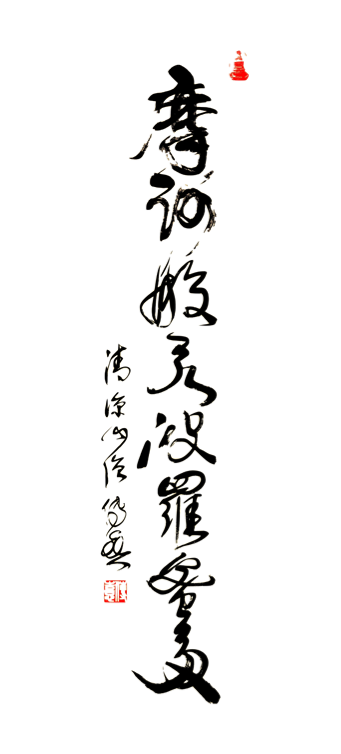 摩訶般若波羅蜜多
清涼山僧